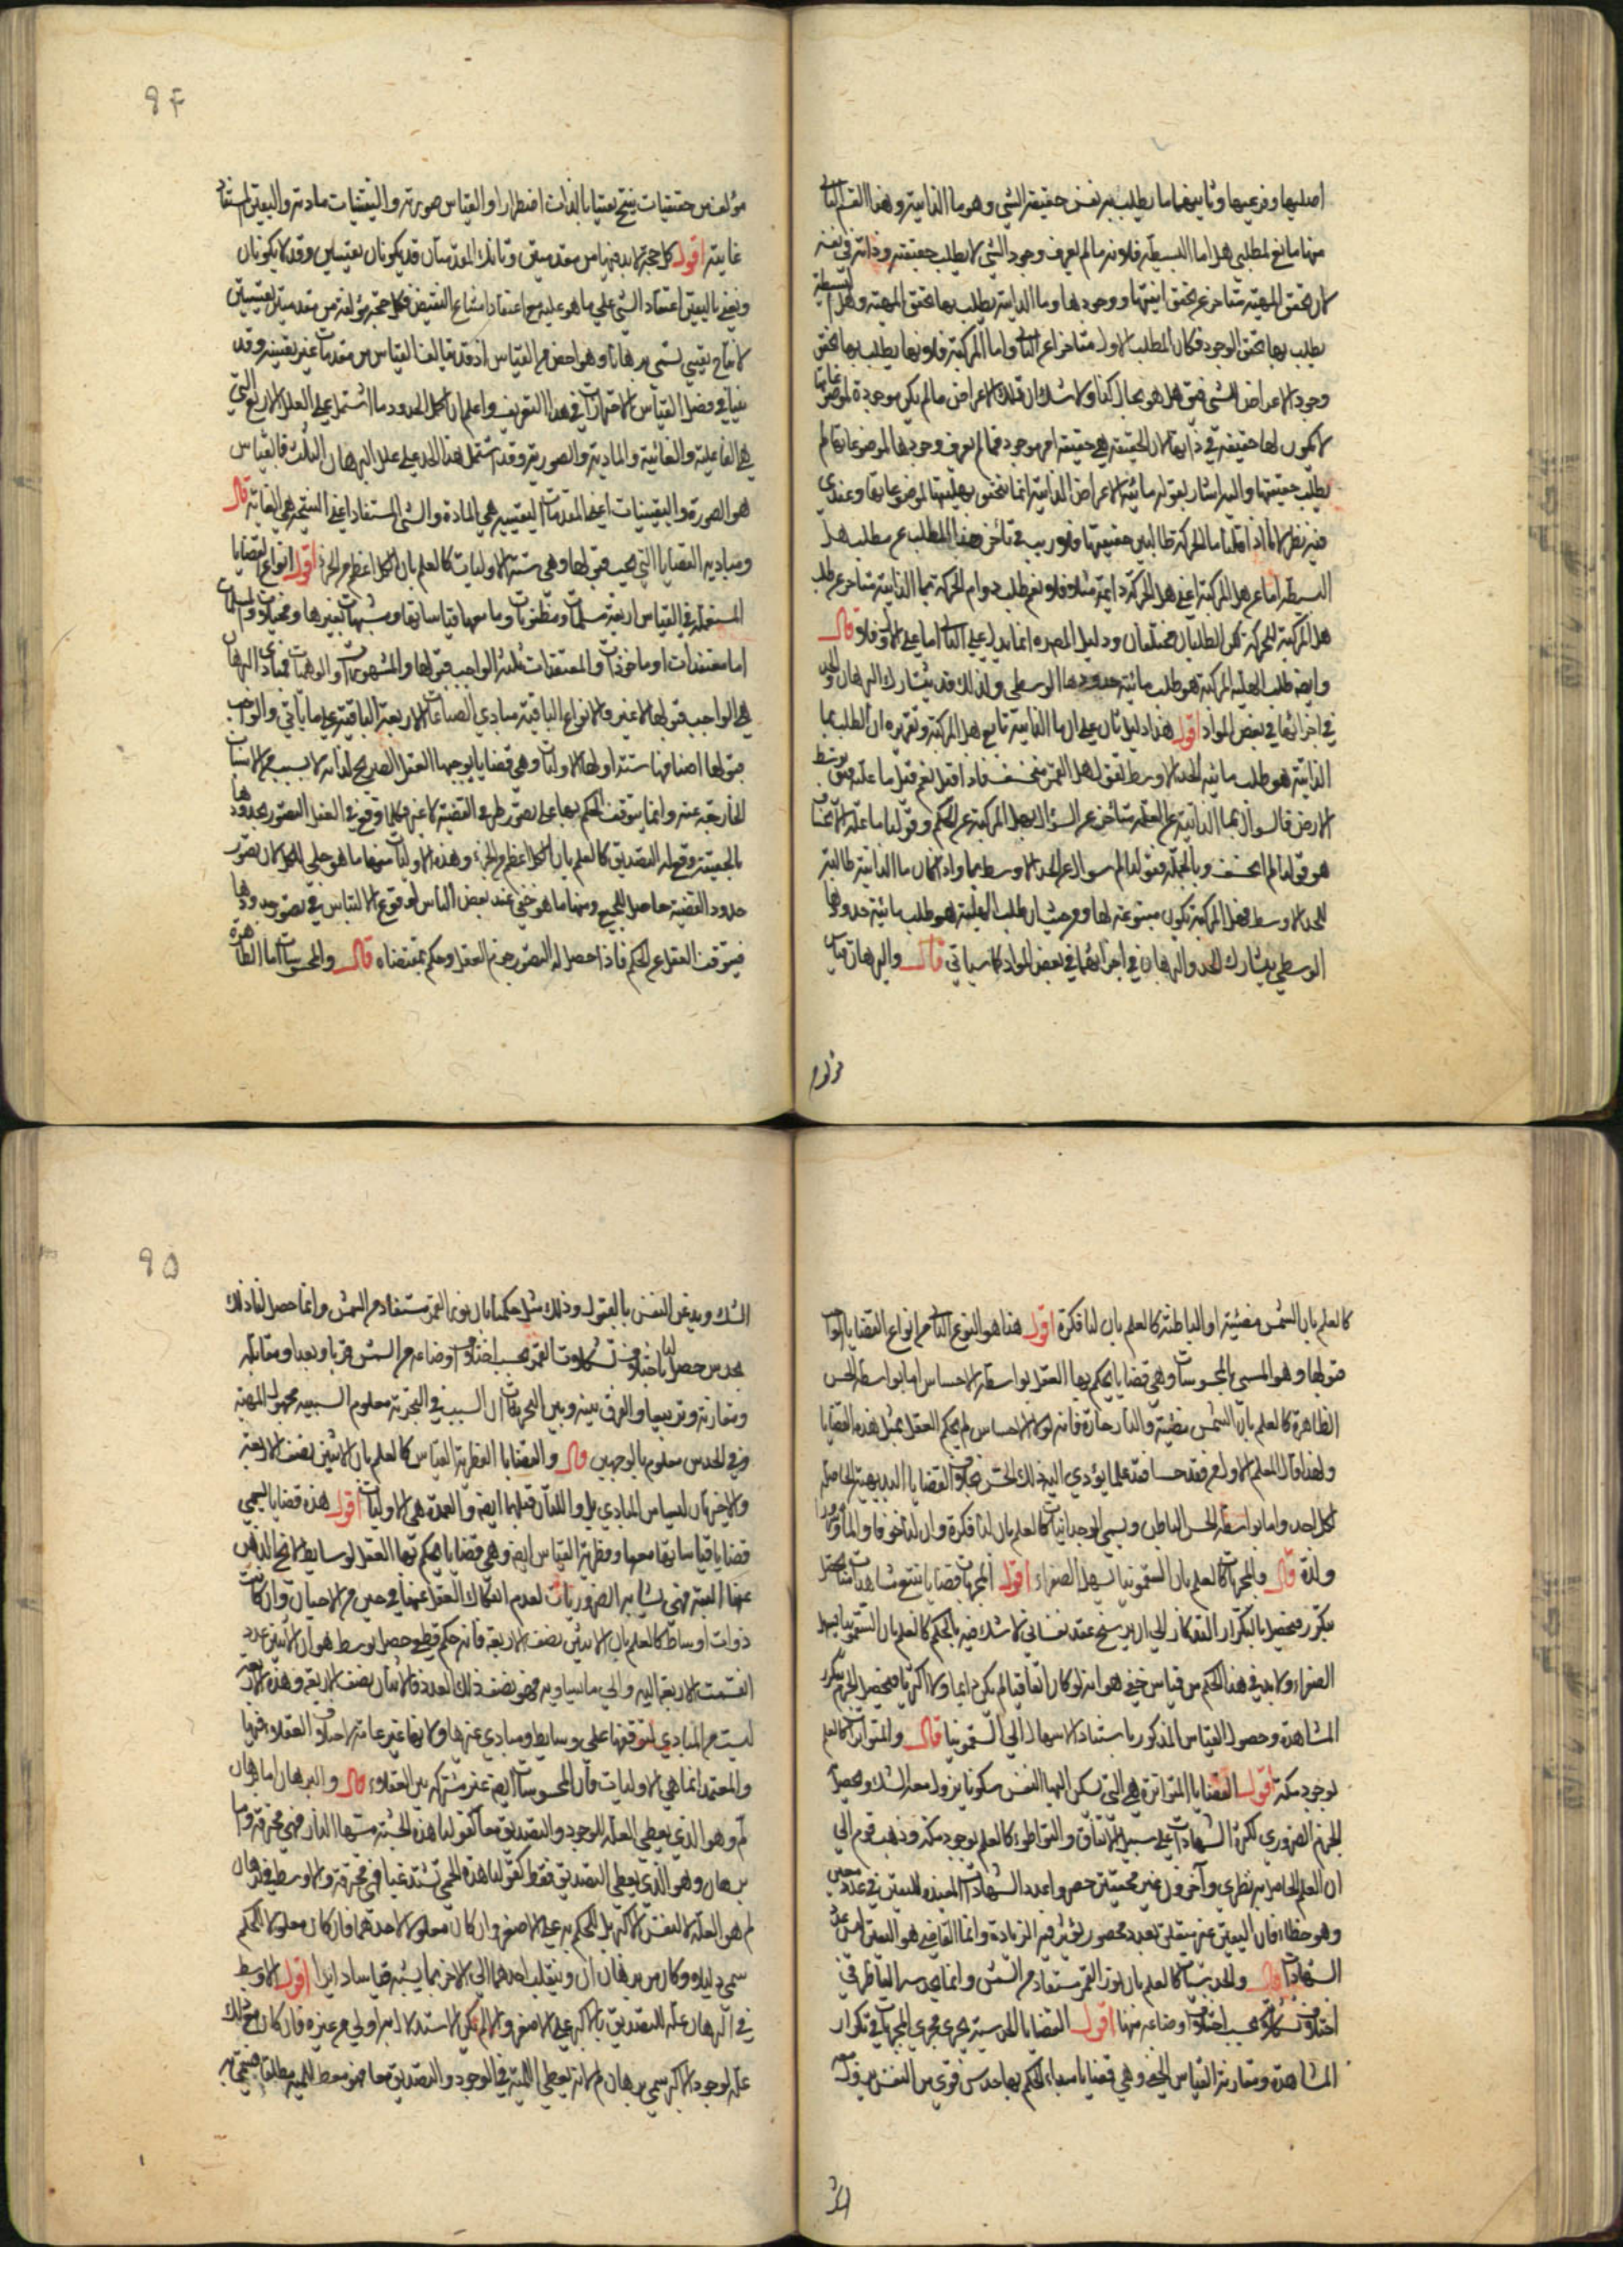 اصليها وفرعيها وثانيهما ما يطلب به نفس حقيقة الشي وهو ما الذاتية وهذا القسم الثاني
منهما مانع لمطلبي هل اما البسيطة فلانه ما لم يعرف وجود الشي لا يطلب حقيقته وذاته في نفسه
لان تحقق المهية متاخر عن تحقق انيتها ووجودها وما الذاتية يطلب بها تحقق المهية وهل البسيطة
يطلب بها تحقق الوجود فكان المطلب الاول متاخرا عن الثاني واما المركبة فلانها يطلب بها تحقق
وجود الاعراض للشي فيق هل هو بحال كذا ولا شك ان تلك الاعراض ما لم يكن موجودة لموضوعاتها
لا يكون لها حقيقة في ذاتها لان الحقيقة هي حقيقة امر موجود فما لم يعرف وجودها لموضوعاتها لم
يطلب حقيقتها واليه اشار بقوله مائية الاعراض الذاتية انما تتحقق بهليتها لموضوعاتها وعندي
فيه نظر لانا اذا قلنا ما الحركة طالبين حقيقتها فلا ريب في تاخر هذا المطلب عن مطلب هل
البسيطة اما عن هل المركبة اعني هل الحركة دايمة مثلا فلا نعم طلب دوام الحركة بما الذاتية متاخر عن طلب
هل المركبة للحركة لكن الطلبان مختلفان ودليل المص ره انما يدل على الثاني اما على الاول فلا قال
وايضا طلب الهلية المركبة هو طلب مائية حدودها الوسطى ولذلك قد يتشارك البرهان والحد
في اجزائهما في بعض المواد اقول هذا دليل ثان على ان ما الذاتية تابع هل المركبة وتقريره ان الطلب بما
الذاتية هو طلب مائية الحد الاوسط لقولنا هل القمر منخسف فاذا قيل نعم قيل ما علته فيق توسط
الارض فالسوال بما الذاتية عن العلة متاخر عن السؤال بهل المركبة عن الحكم وقولنا ما علة الانخساف
هو قولنا لم انخسف وبالجملة فقولنا لم سوال عن الحد الاوسط بما واذا كان ما الذاتية طالبة
للحد الاوسط فهل المركبة يكون متبوعة لها ومن حيث ان طلب الهلية هو طلب مائية حدودها
الوسطى يشارك الحد والبرهان في اجزائهما في بعض المواد كما سياتي قال والبرهان قياس
مؤلف من
مؤلف من حقيقيات ينتج يقينيا بالذات اضطرارا والقياس صورته واليقينيات مادته واليقين المستفاد
غايته اقول كل حجة لا بد فيها من مقدمتين وتانك المقدمتان قد يكونان يقينيتين وقد لا يكونان
ونعني باليقين اعتقاد الشي على ما هو عليه مع اعتقاد امتناع النقيض فكل حجة مؤلفة من مقدمتين يقينيتين
لانتاج يقيني تسمى برهانا وهو اخص من القياس اذ قد يتالف القياس من مقدمات غير يقينية وقد
بينا في فصل القياس الاحترازات في هذا التعريف واعلم ان اكمل الحدود ما اشتمل على العلل الاربع التي
هي الفاعلية والغائية والمادية والصورية وقد اشتمل هذا الحد على علل البرهان الثلث فالقياس
هو الصورة واليقينيات اعني المقدمات اليقينية هي المادة والشي المستفاد اعني النتيجة هي الغاية قال
ومباديه القضايا التي يجب قبولها وهي ستة الاوليات كالعلم بان الكل اعظم من الجزء اقول انواع القضايا
المستعملة في القياس اربعة مسلمات ومظنونات وما معها قياساتها ومشبهات بغيرها ومخيلات والمسلمات
اما معتقدات او ماخوذات والمعتقدات ثلثة الواجب قبولها والمشهورات والوهميات فمبادي البرهان
هي الواجب قبولها لا غير والانواع الباقية مبادي الصناعات الاربعة الباقية على ما ياتي والواجب
قبولها اصنافها ستة اولها الاوليات وهي قضايا يوجبها العقل الصريح لذاته لا بسبب من الاسباب
الخارجية عنه وانما يتوقف الحكم بها على تصور طرفي القضية لا غير فكلما وقع في العقل التصور بحدودها
بالحقيقة وقع له التصديق كالعلم بان الكل اعظم من الجزء وهذه الاوليات منها ما هو جلي للكل لان تصور
حدود القضية حاصل للجميع ومنها ما هو خفي عند بعض الناس لوقوع الالتباس في تصور حدودها
فيتوقف العقل عن الحكم فاذا حصل له التصور جزم العقل وحكم بمقتضاه قال والمحسوسات اما الظاهرة
كالعلم بان الشمس مضيئة او الباطنة كالعلم بان لنا فكرة اقول هذا هو النوع الثاني من انواع القضايا الواجب
قبولها وهو المسمى بالمحسوسات وهي قضايا يحكم بها العقل بواسطة الاحساس اما بواسطة الحس
الظاهرة كالعلم بان الشمس مضيئة والنار حارة فانه لولا الاحساس لم يحكم العقل بمثل هذه القضايا
ولهذا قال المعلم الاول من فقد حسا فقد علما يؤدي اليه ذلك الحس بخلاف القضايا البديهية الحاصلة
لكل احد واما بواسطة الحس الباطن ويسمى الوجدانيات كالعلم بان لنا فكرة وان لنا خوفا والما وسرورا
ولذة قال والمجربات كالعلم بان السقمونيا تسهل الصفراء اقول المجربات قضايا يتبع مشاهدات منا يحصل
بتكرر فيحصل بالتكرار التذكار الى ان يرسخ عقد نفساني لا شك فيه بالحكم كالعلم بان السقمونيا تسهل
الصفراء ولا بد في هذا الحكم من قياس خفي هو انه لو كان اتفاقيا لم يكن دايما ولا اكثريا فيحصل الجزم بتكرر
المشاهدة وحصول القياس المذكور باستناد الاسهال الى السقمونيا قال والمتواترات كالعلم
بوجود مكة اقول القضايا المتواترة هي التي تسكن اليها النفس سكونا يزول معه الشك ويحصل
الجزم الضروري لكثرة الشهادات على سبيل الاتفاق والتواطؤ كالعلم بوجود مكة وذهب قوم الى
ان العلم الحاصل به نظري وآخرون غير محققين حصروا عدد الشهادات المفيدة لليقين في عدد معين
وهو خطاء فان اليقين غير متعلق بعدد محصور يؤثر فيه الزيادة وانما القاضي هو اليقين لا عدد
الشهادات قال والحدسيات كالعلم بان نور القمر مستفاد من الشمس وانما يحدسه الناظر في
اختلاف تشكلاته بحسب اختلاف اوضاعه منها اقول القضايا الحدسية يجري مجرى المجربات في تكرار
المشاهدة ومقارنة القياس الخفي وهي قضايا مبداء الحكم بها حدس قوي من النفس يزول معه
الشك
الشك ويذعن النفس بالقبول وذلك مثل حكمنا بان نور القمر مستفاد من الشمس وانما حصل لنا ذلك
بحدس حصل لنا باختلاف تشكلات القمر بحسب اختلاف اوضاعه من الشمس قربا وبعدا ومقابلة
ومقارنة وتربيعا والفرق بينه وبين المجربات ان السبب في التجربة معلوم السببية مجهول المهية
وفي الحدس معلوم بالوجهين قال والقضايا الفطرية القياس كالعلم بان الاثنين نصف الاربعة
والاخيرتان ليستا من المبادي بل واللتان قبلهما ايضا والعمدة هي الاوليات اقول هذه قضايا يسمى
قضايا قياساتها معها وفطرية القياس ايضا وهي قضايا يحكم بها العقل لوسايط لا يخلو الذهن
عنها البتة فهي تشابه الضروريات لعدم انفكاك العقل عنها في حين من الاحيان وان كانت
ذوات اوساط كالعلم بان الاثنين نصف الاربعة فانه حكم قطعي حصل بوسط هو ان الاثنين عدد
انقسمت الاربعة اليه والى ما يساويه فهو نصف ذلك العدد فالاثنان نصف الاربعة وهذه الاربعة
ليست من المبادي لتوقفها على وسايط ومبادي غيرها ولانها غير عامة لاختلاف العقلاء فيها
والمعتمد انما هي الاوليات فان المحسوسات ايضا غير مشتركة بين العقلاء قال والبرهان اما برهان
لم وهو الذي يعطي العلة للوجود والتصديق معا كقولنا هذه الخشبة مستها النار فهي محترقة واما
برهان ان وهو الذي يعطي التصديق فقط كقولنا هذه الحمى تشتد غبا فهي محرقة والاوسط في برهان
لم هو العلة لا لنفس الاكبر بل للحكم به على الاصغر وان كان معلولا لاحدهما فان كان معلولا للحكم
سمي دليلا وكان من برهان ان وينقلب احدهما الى الاخر بما يشبه قياسا دايرا اقول الاوسط
في البرهان علة للتصديق بالاكبر على الاصغر والا لم يكن الاستدلال به اولى من غيره فان كان مع ذلك
علة لوجود الاكبر سمي برهان لم لانه يعطي اللمية في الوجود والتصديق معا فهو معط للمية مطلقا فيسمى به